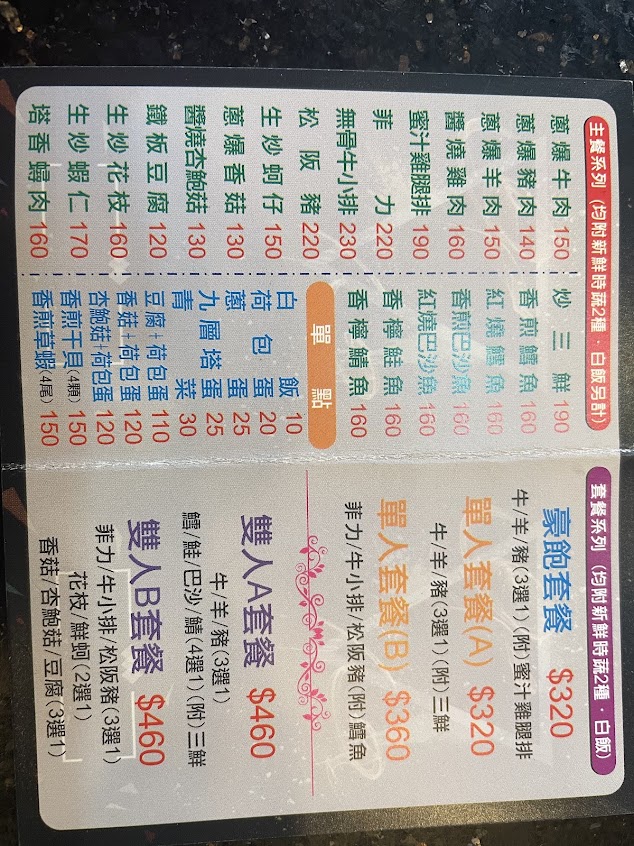 主餐系列 (均附新鮮時蔬2種．白飯另計)
蔥爆牛肉 150
蔥爆豬肉 140
蔥爆羊肉 150
醬燒雞肉 160
蜜汁雞腿排 190
菲力 220
無骨牛小排 230
松阪豬 220
生炒蚵仔 150
蔥爆香菇 130
醬燒杏鮑菇 130
鐵板豆腐 120
生炒花枝 160
生炒蝦仁 170
塔香蟳肉 160
炒三鮮 190
香煎鱈魚 160
紅燒鱈魚 160
香煎巴沙魚 160
紅燒巴沙魚 160
香檸鮭魚 160
香檸鯖魚 160
單點
白飯 10
荷包蛋 20
蔥蛋 25
九層塔蛋 25
青菜 30
豆腐+荷包蛋 110
香菇+荷包蛋 120
杏鮑菇+荷包蛋 120
香煎干貝(4顆) 150
香煎草蝦(4尾) 150
套餐系列 (均附新鮮時蔬2種．白飯)
豪飽套餐 $320
牛/羊/豬(3選1)(附)蜜汁雞腿排
單人套餐(A) $320
牛/羊/豬(3選1)(附)三鮮
單人套餐(B) $360
菲力/牛小排/松阪豬(附)鱈魚
雙人A套餐 $460
牛/羊/豬(3選1)
鱈/鮭/巴沙/鯖(4選1)(附)三鮮
雙人B套餐 $460
菲力/牛小排/松阪豬(3選1)
花枝/鮮蚵(2選1)
香菇/杏鮑菇/豆腐(3選1)